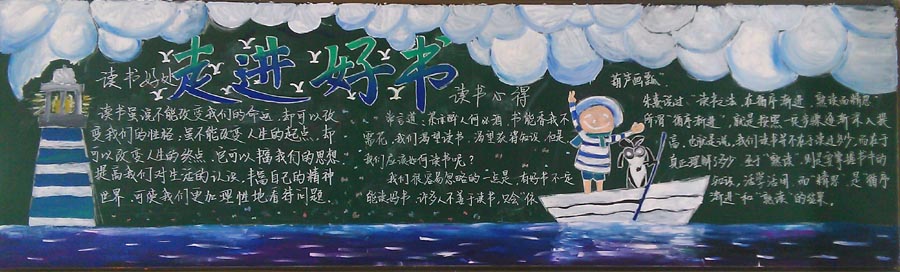 走进好书
读书妙处
读书虽说不能改变我们的命运,却可以改
变我们的性格,虽不能改变人生的起点,却
可以改变人生的终点,它可以拓我们的思想
提高我们对生活的认识,丰富自己的精神
世界,可使我们更加理性地看待问题.
读书心得
常言道:茶亦醉人何必酒,书能香我不
需花,我们渴望读书,渴望获得知识,但是
我们应该如何读书呢?
我们很容易忽略的一点是:有好书不一定
能读好书,许多人不善于读书,只会“依
葫芦画瓢”
朱熹说过:“读书之法,在循序渐进,熟读而精思”
所谓“循序渐进”,就是按照一定步骤逐渐深入或
高,也就是说,我们读书并不在于读过多少,而在于
真正理解了多少,至于“熟读”,则是要掌握书中的
知识,活学活用,而“精思”,是“循序
渐进”和“熟读”的结果.